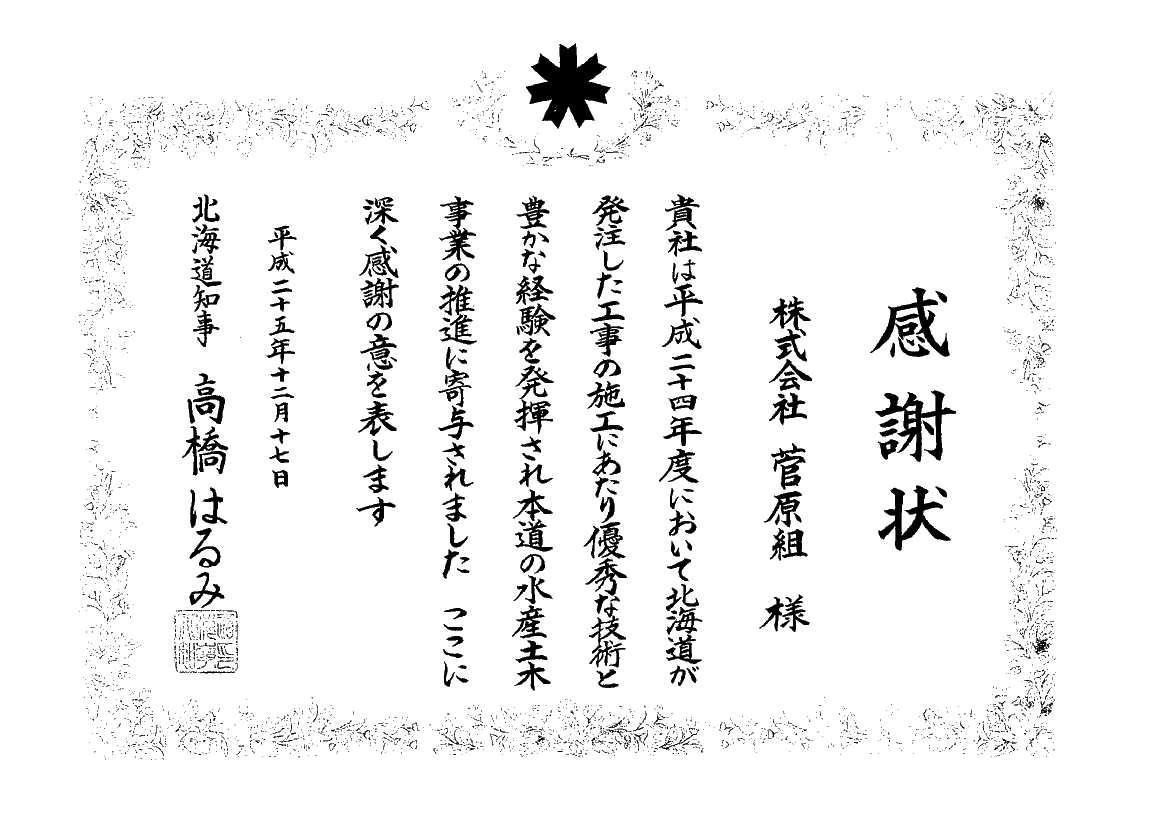 感謝状
株式会社 菅原組 様
貴社は平成二十四年度において北海道が
発注した工事の施工にあたり優秀な技術と
豊かな経験を発揮され本道の水産土木
事業の推進に寄与されました ここに
深く感謝の意を表します
平成二十五年十二月十七日
北海道知事 高橋はるみ